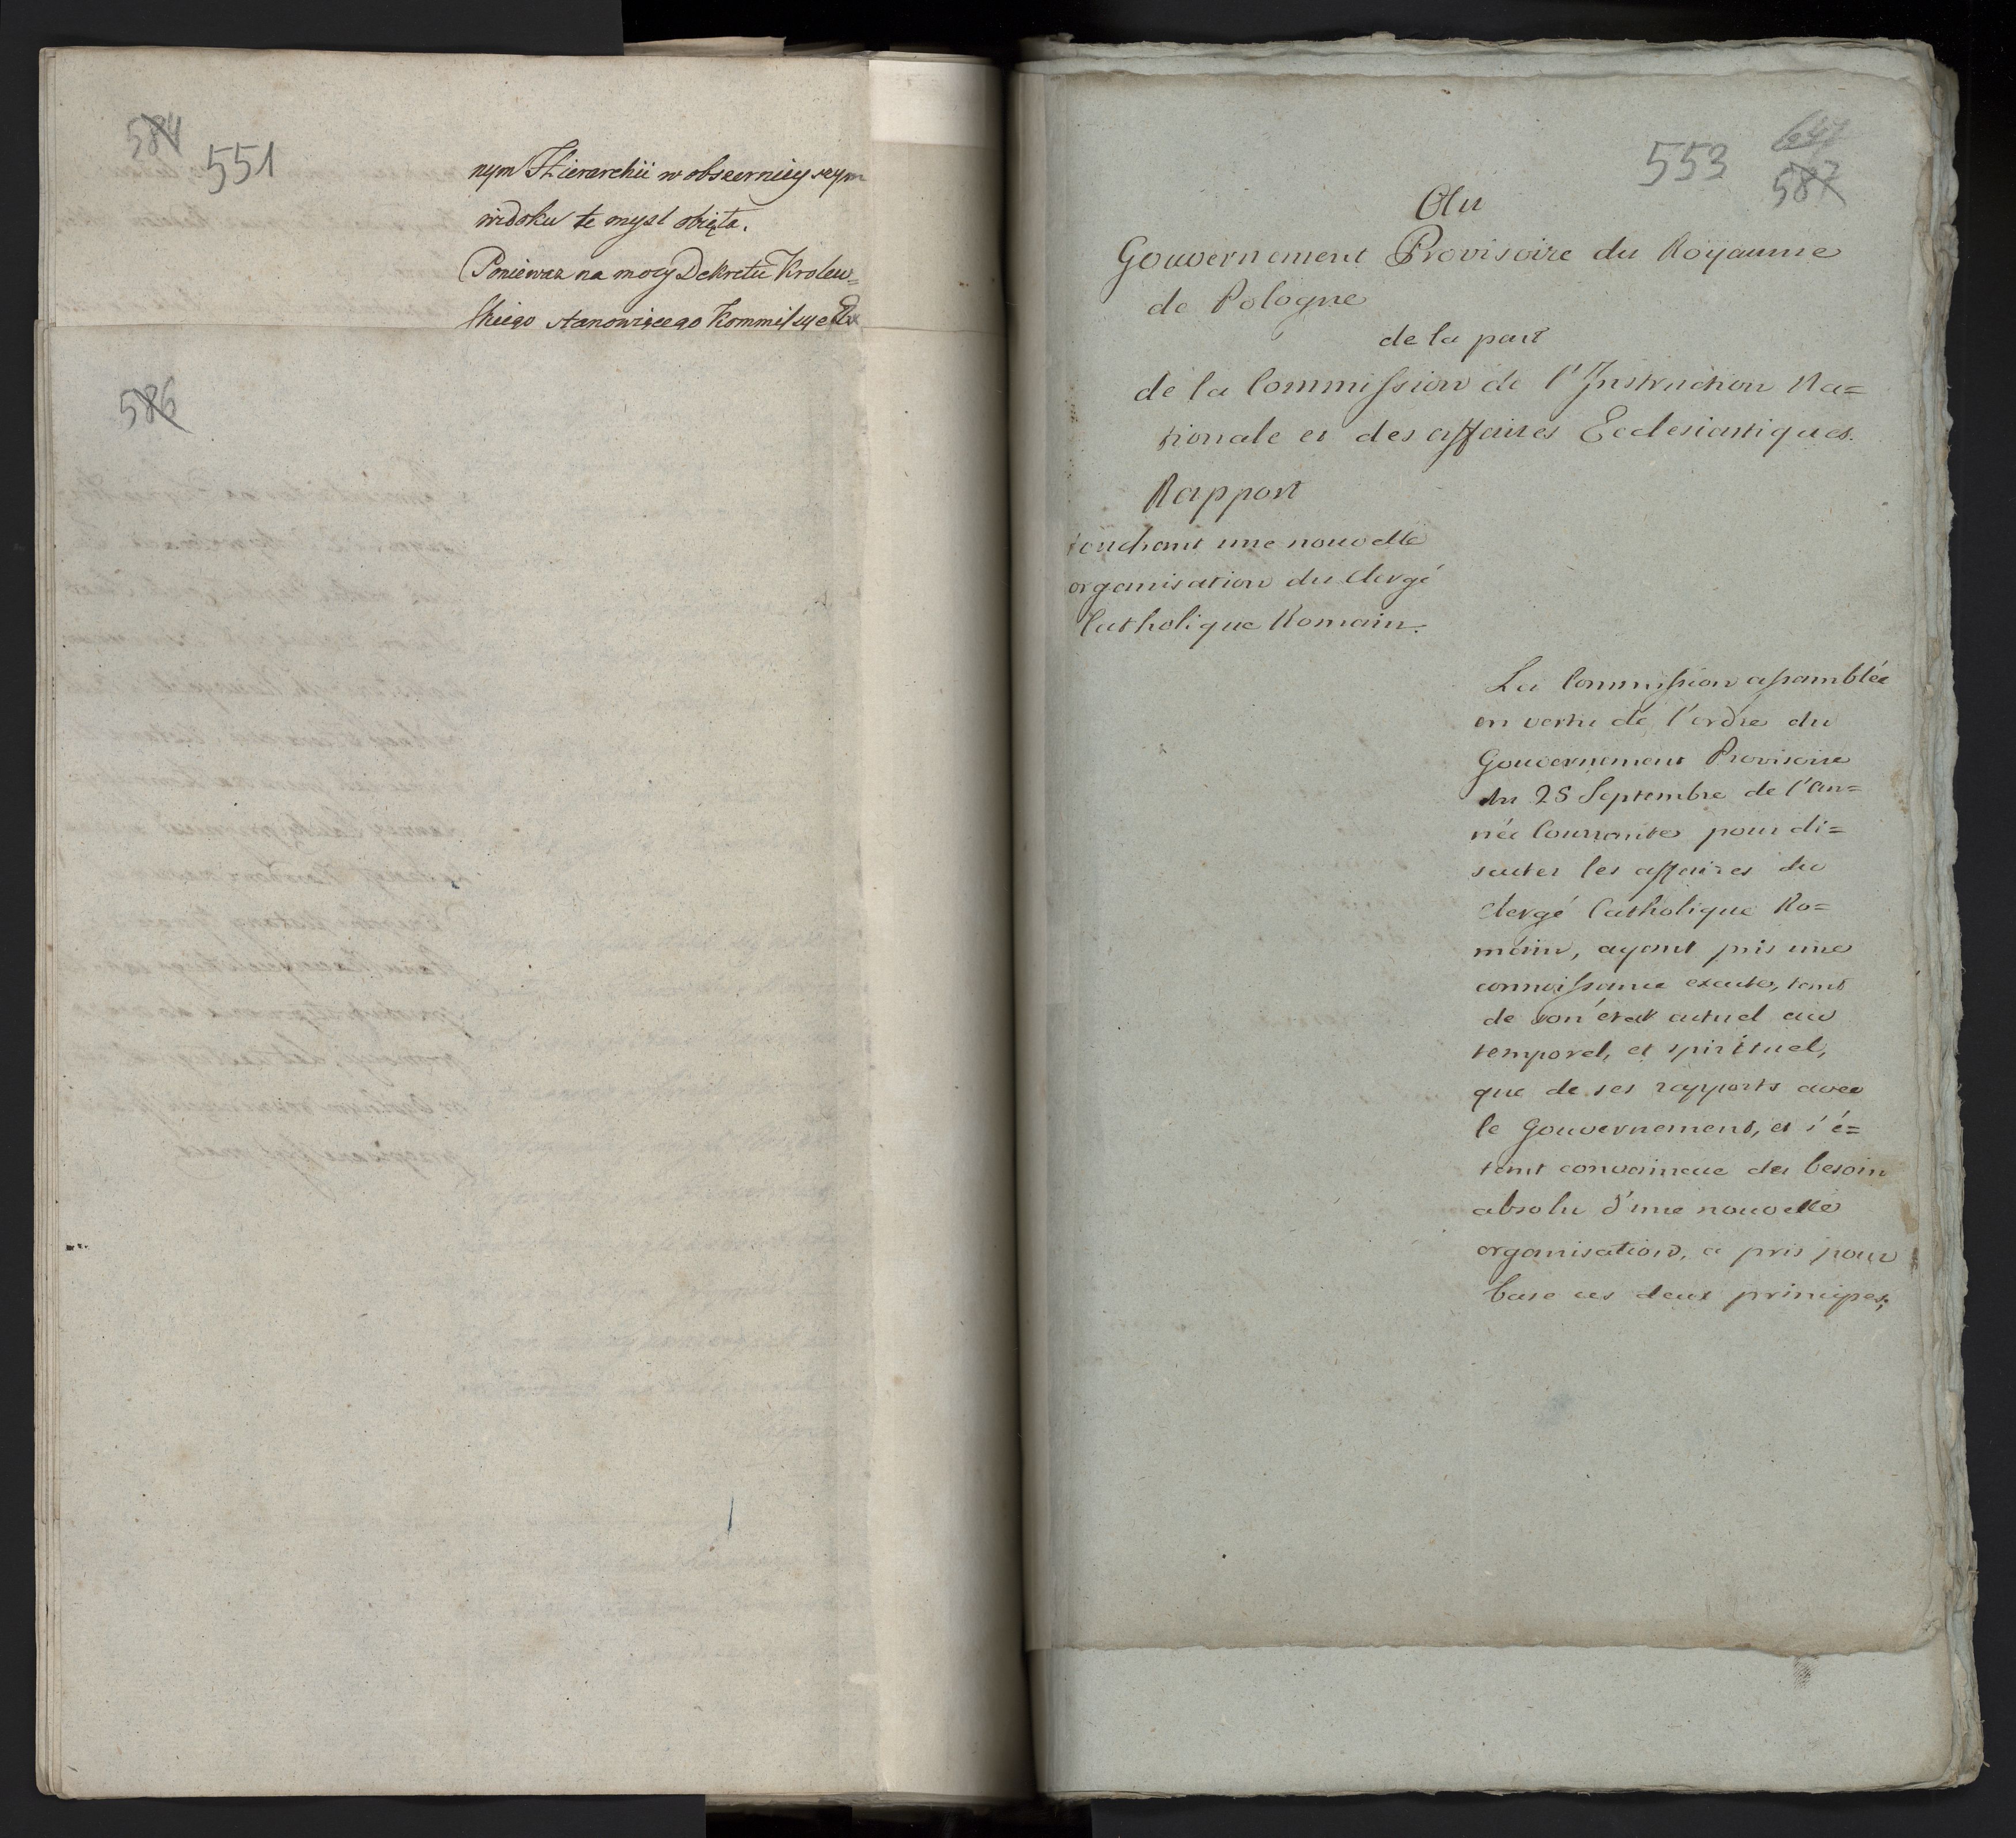 584
551
nym Hierarchii w obszerniey szym
widoku te mysl obięta.
Poniewaz na mocy Dekretu Krolew=
skiego stanowiącego Kommissye
586
553
647
587
Au
Gouvernement Provisoire du Royaume
de Pologne
de la part
de la Commission de l'Instruction Na=
tionale et des affaires Ecclesiastiques.
Rapport
touchant une nouvelle
organisation du Clergé
Catholique Romain.
La Commission assamblée
en vertu de l'ordre du
Gouvernement Provisoire
du 25 Septembre de l'an=
née Courrante pour di=
scuter les affaires du
Clergé Catholique Ro=
main, ayant pris une
connoissance exacte, tant
de son état actuel au
temporel, et spirituel,
que de ses rapports avec
le Gouvernement, et s'é=
tant convaincue du besoin
absolu d'une nouvelle
organisation, a pris pour
base ces deux principes;